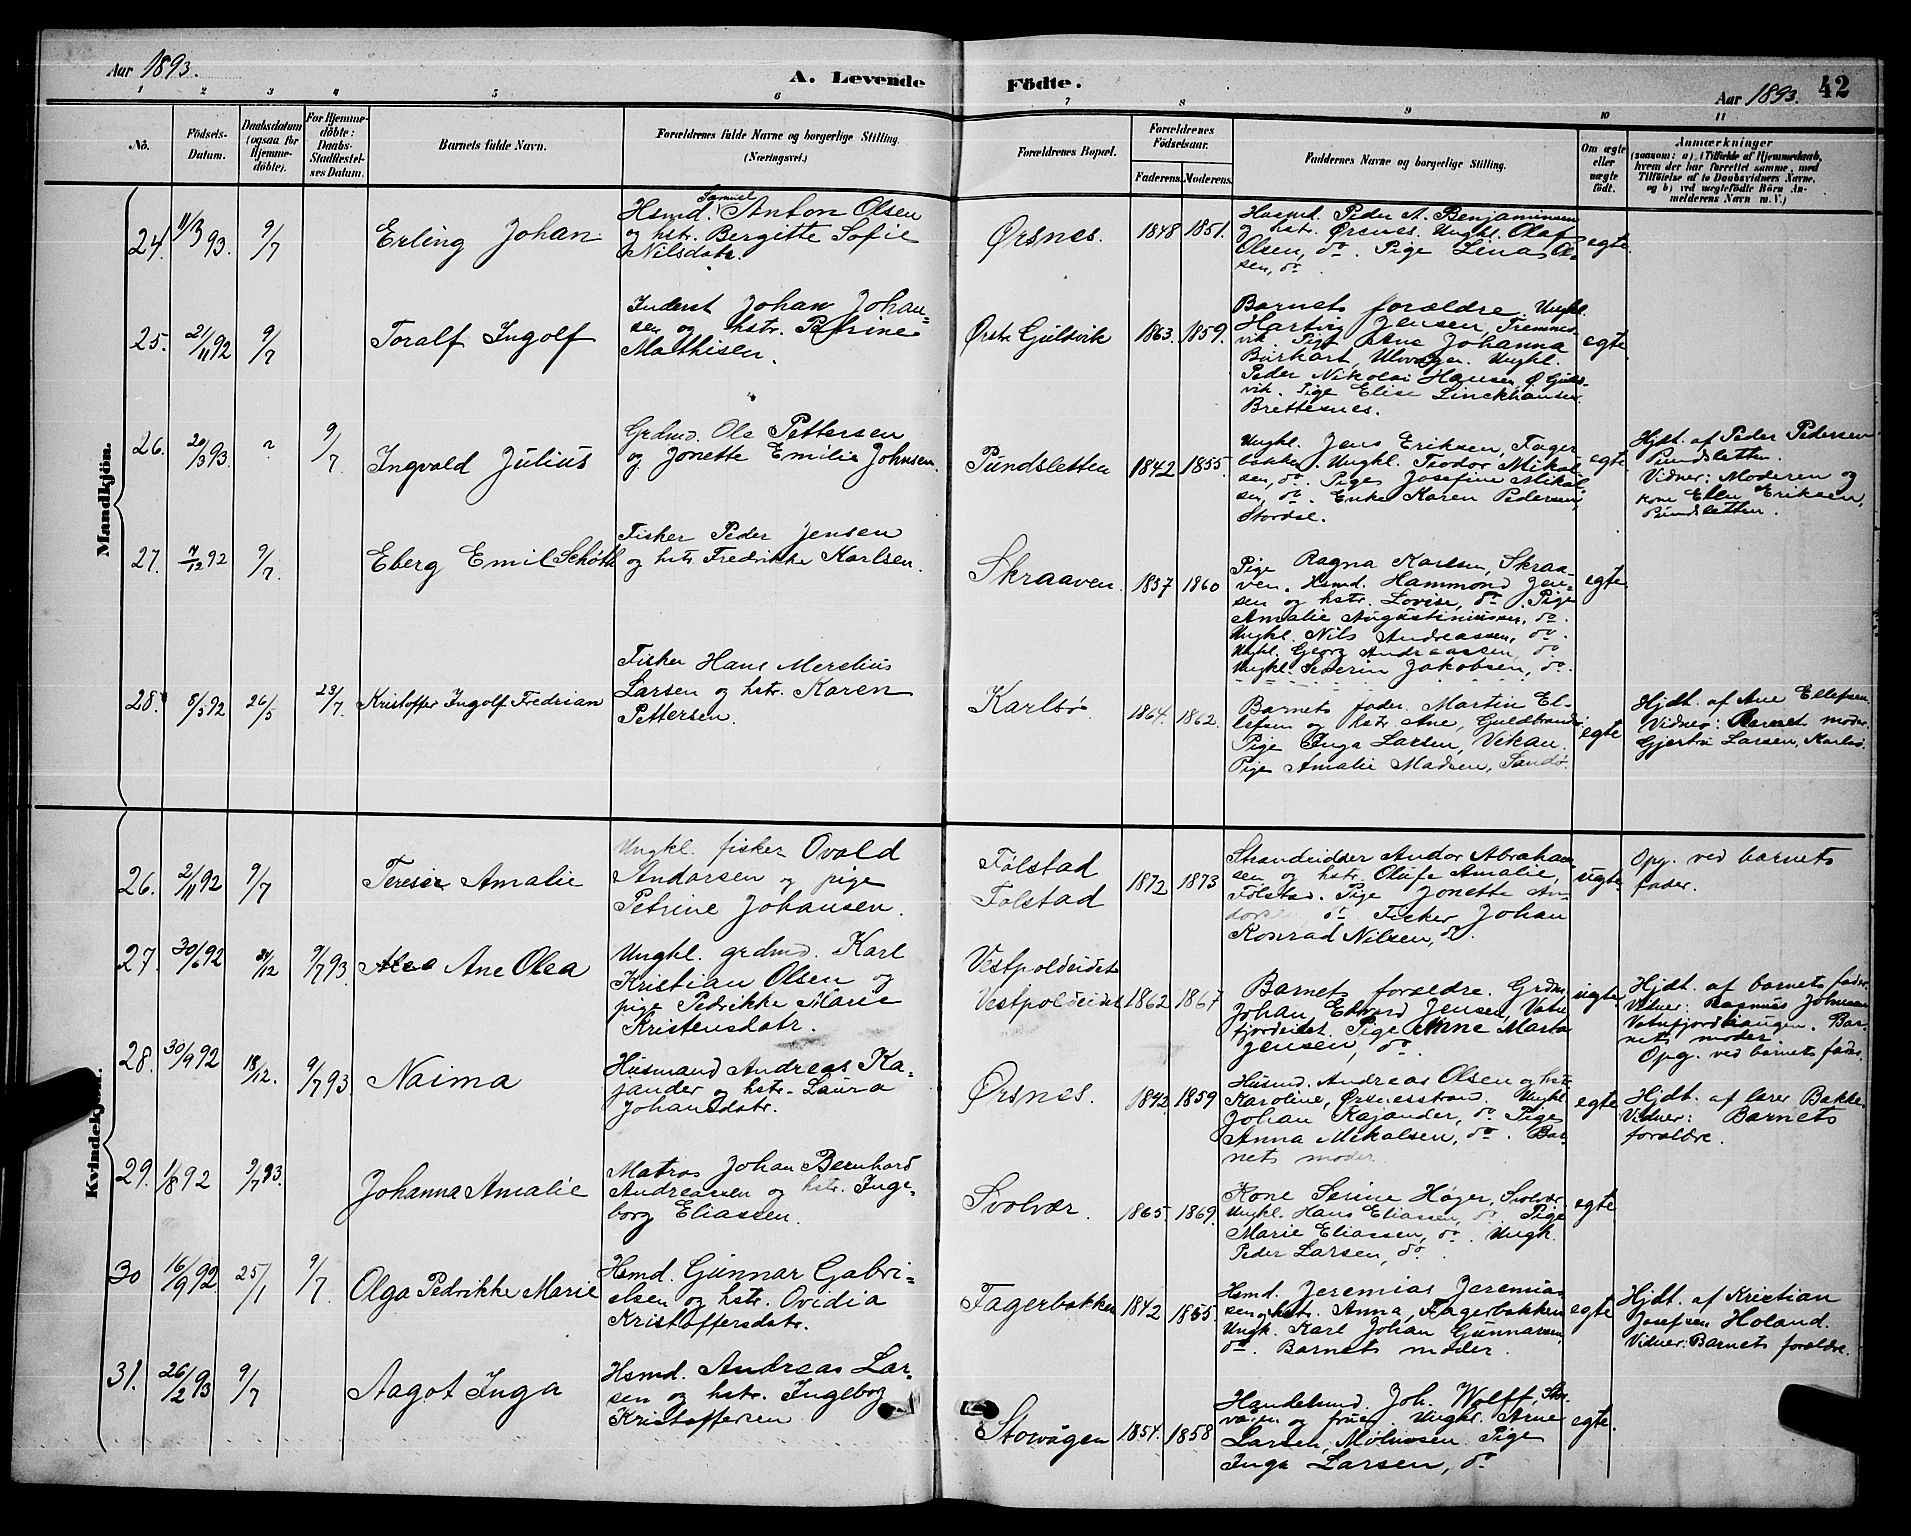 Aar 1893.
A. Levende
Födte.
Aar 1893.
42
1 2 3 4 5 6 7 8 9 10 11
No.
Födsels-
Datum.
Daabsdatum
(ogsaa for
Hjemme-
döbte).
For Hjemme-
döbte:
Daabs-
Stadfæstel-
ses Datum.
Barnets fulde Navn.
Forældrenes fulde Navne og borgerlige Stilling.
(Næringsvei.)
Forældrenes Bopæl.
Forældrenes
Födselsaar.
Faderens.
Moderens.
Faddernes Navne og borgerlige Stilling.
Om ægte
eller
uægte
født.
Anmærkninger
(saasom: a) i Tilfælde af Hjemmedaab,
hvem der har forrettet samme, med
Tilföielse af to Daabsvidners Navne,
og b) ved uægtefödte Börn An-
melderens Navn m. V.)
Mandkjön.
24. 11/3 93. 9/7 Erling Johan
Hsmd. Samuel Anton Olsen
og hstr. Bergitte Sofie
Nilsdatr.
Ørsnes. 1848 1851.
Husmd. Peder A. Benjaminsen
og hstr. Ørsnes. Ungkl. Olaf
Olsen, do. Pige Lina Ol-
sen, do.
egte.
25. 21/11 92 9/7 Toralf Ingolf
Inderst Johan Johan-
sen og hstr. Petrine
Mathisen.
Østr Guldvik 1863. 1859.
Barnets forældre. Ungkl.
Hartvig Jensen,
vik. Pige Ane Johanna
Burkart, Ulvaagen. Ungkl.
Peder Nikolai Hansen, Ø Gulds-
vik. Pige Elise Linckhausen
Brettesnes.
egte
26. 20/3 93. ? 9/7 Ingvald Julius
Grdmd. Ole Pettersen
og Jonette Emilie Johnsen.
Pundsletten 1842 1855.
Ungkl. Jens Eriksen, Fager-
bakken. Ungkl. Teodor Mikal-
sen, do. Pige Josefine Mikal-
sen, do. Enke Karen Pedersen,
egte
Hjdt. af Peder Pedersen
Pundsletten.
Vidner: Moderen og
kone Ellen Eriksen,
Pundsletten.
27. 7/12 92 9/7. Eberg Emil Schøtt
Fisker Peder Jensen
og hstr Fredrikke Karlsen.
Skraaven. 1857 1860
Pige Ragna Karlsen, Skraa-
ven. Hsmd. Hammond Jen-
sen og hstr. Lovise, do. Pige
Amalie Augustinussen, do.
Ungkl. Nils Andreassen, do.
Ungkl. Georg Andreassen, do.
Ungkl. Severin Jakobsen, do.
egte.
28. 8/5 92 26/5 23/7. Kristoffer Ingolf Fredrian
Fisker Hans Merelius
Larsen og hstr. Karen
Pettersen.
Karlsø 1864. 1862.
Barnets fader. Martin El-
lefsen og hstr Ane, Guldbrandsø.
Pige Inga Larsen, Vikan.
Pige Amalie Madsen, Sandø.
egte
Hjdt. af Ane Ellefsen
Vidner: Barnets moder.
Gjertru Larsen, Karlsø.
Kvindekjön.
26. 2/11 92 9/7 Terese Amalie
Ungkl. fisker Ovald
Andorsen og pige
Petrine Johansen.
Følstad
Følstad
1872 1873
Strandsidder Andor Abraham-
sen og hstr. Olufe Amalie,
Følstad. Pige Jonette An-
dorsen, do. Fisker Johan
Konrad Nilsen, do.
uegte.
Opg. ved barnets
fader.
27. 30/6 92 31/12 9/7 93. Ane Olea
Ungkl. grdmd. Karl
Kristian Olsen og
pige Pedrikke Marie
Kristensdatr.
Vestpoldeidet
Vestpoldeidet
1862 1867
Barnets forældre. Grdm.
Johan Edvard Jensen, Vatn-
fjordeidet. Pige Anne Marta
Jensen, do.
uegte.
Hjdt. af barnets fader.
Vidner: Rasmus Johnsen
Vatnfjordhaugen. Bar-
nets moder.
Opg. ved barnets fader.
28. 30/9 92 18/12. 9/7 93 Naima
Husmand Andreas Ka-
jander og hstr. Laura
Johansdatr.
Ørsnes. 1842 1859
Husmd. Andreas Olsen og hstr.
Karoline, Ørsnesstrand. Ungkl.
Johan Kajander, do. Pige
Anna Mikalsen, do. Bar-
nets moder
egte
Hjdt. af lærer Bakke.
Vidner: Barnets
forældre.
29. 1/8 92 9/7 93. Johanna Amalie
Matros Johan Bernhard
Andreassen og hstr. Inge-
borg Eliassen.
Svolvær. 1865. 1869.
Kone Serine Høier, Svolvær
Ungkl. Hans Eliassen, do. Pige
Marie Eliassen, do. Ungk.
Peder Larsen, do.
egte
30 16/9 92 25/1 9/7 Olga Pedrikke Marie
Hsmd. Gunnar Gabri-
elsen og hstr. Ovidia
Kristoffersdatr.
Fagerbakken 1842 1855.
Hsmd. Jeremias Jeremias-
sen og hstr. Anna, Fagerbakken
Ungk. Karl Johan Gunnarsen,
do. Barnets moder.
egte
Hjdt. af Kristian
Josefsen Holand.
Vidner: Barnets forældre.
31. 26/2 93 9/7 Aagot Inga
Hsmd. Andreas Lar-
sen og hstr. Ingeborg
Kristoffersen
Storvågen 1854. 1858
Handelsmd. Joh. Wolff, Stor-
vagen og frue. Ungkl. Arne
Larsen, Pige
Inga Larsen, do
egte.